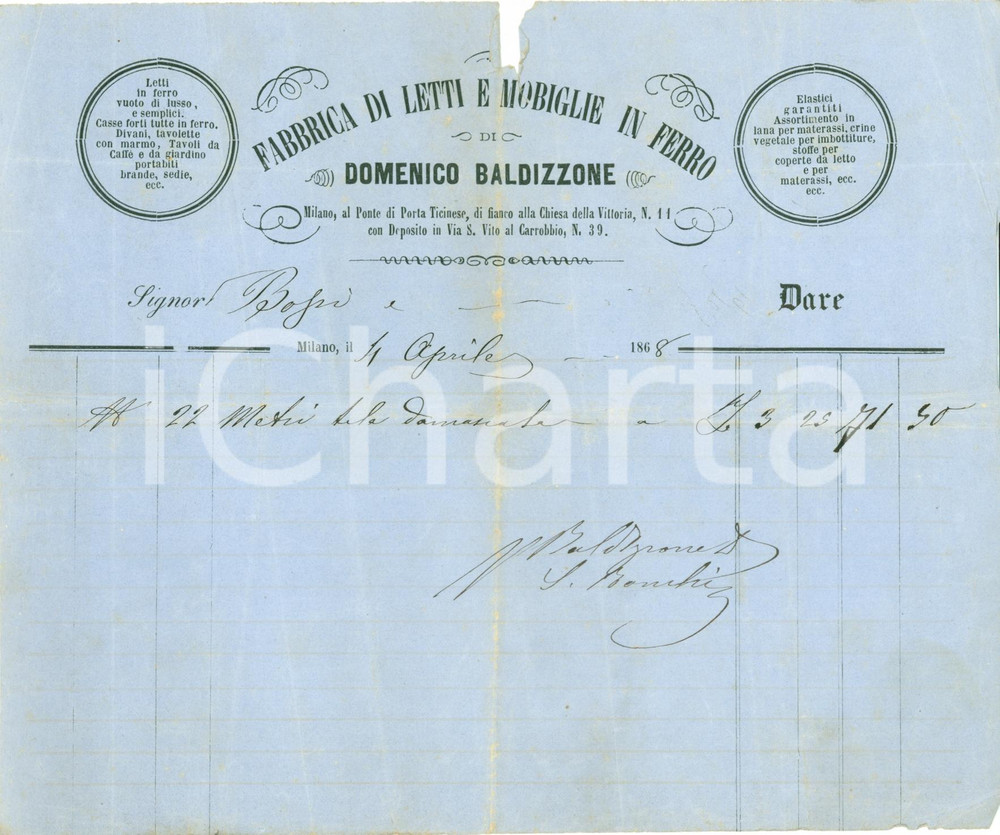 Letti
in ferro
vuoto di lusso,
e semplici.
Casse forti tutte in ferro.
Divani, tavolette
con marmo, Tavoli da
Caffe e da giardino
portabiti
brande, sedie,
ecc.
FABBRICA DI LETTI E MOBIGLIE IN FERRO
DI
DOMENICO BALDIZZONE
Milano, al Ponte di Porta Ticinese, di fianco alla Chiesa della Vittoria, N. 11
con Deposito in Via S. Vito al Carrobbio, N. 39.
Elastici
garantiti
Assortimento in
lana per materassi, crine
vegetale per imbottiture,
stoffe per
coperte da letto
e per
materassi, ecc.
ecc.
Signor Rossi e
Dare
Milano, il 4 Aprile 1868
22 Metri tela Damascata a £ 3 25 71 50
Baldizzone D
iCharta